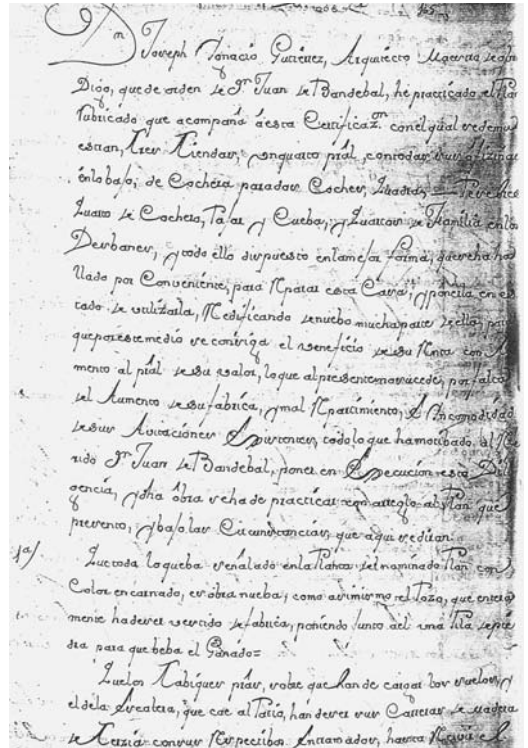 Dn
Joseph Ygnacio Gutierrez, Arquitecto Maestro de obr
Digo, que de orden de Dn. Juan de Bandebal, hé practicado el Plan
fabricado que acompaña á esta Certificazon. con el qual se demu
estran, tres Tiendas, un quarto pral, con todas sus ofizinas
en lo bajo; de Cochera para dos Coches, Quadras,
Quarto de Cochero, Pajar y Cueba, y Quartos de Familia en los
Desbanes, y todo ello dispuesto en la mejor forma, que se ha ha
llado por Conveniente, para Reparar esta Cassa, y ponerla en es
tado de utilizarla, Redificando de nuebo mucha parte de ella, para
que por este medio se consiga el veneficio de su Renta con Au
mento al pral de su valor, lo que al presente no sucede, por falta
del Aumento de su fabrica, y mal Repartimiento, é Yncomodidad
de sus Avitaciones Existentes, todo lo que ha motibado al Refe
rido Dn. Juan de Bandebal, poner en Execucion esta Dili
gencia, y dha óbra se ha de practicar con arreglo al Plan que
presento, y bajo las Circunstancias, que aqui se editan.
1a/ Que toda lo queba señalado en la Planta del nominado Plan con
Color encarnado, es óbra nueba, como asimismo el Pozo, que entera
mente ha de ser vertido de fabrica, poniendo Junto á él una Pila de pie
dra para que beba el Ganado=
Que los Tabiques prâs, sobre que han de cargar los suelos, y
el de la Escalera, que cae al Patio, han de ser sus Carreras de Madera
de Terzia con sus Respectibos Entramados, hasta Recivir el